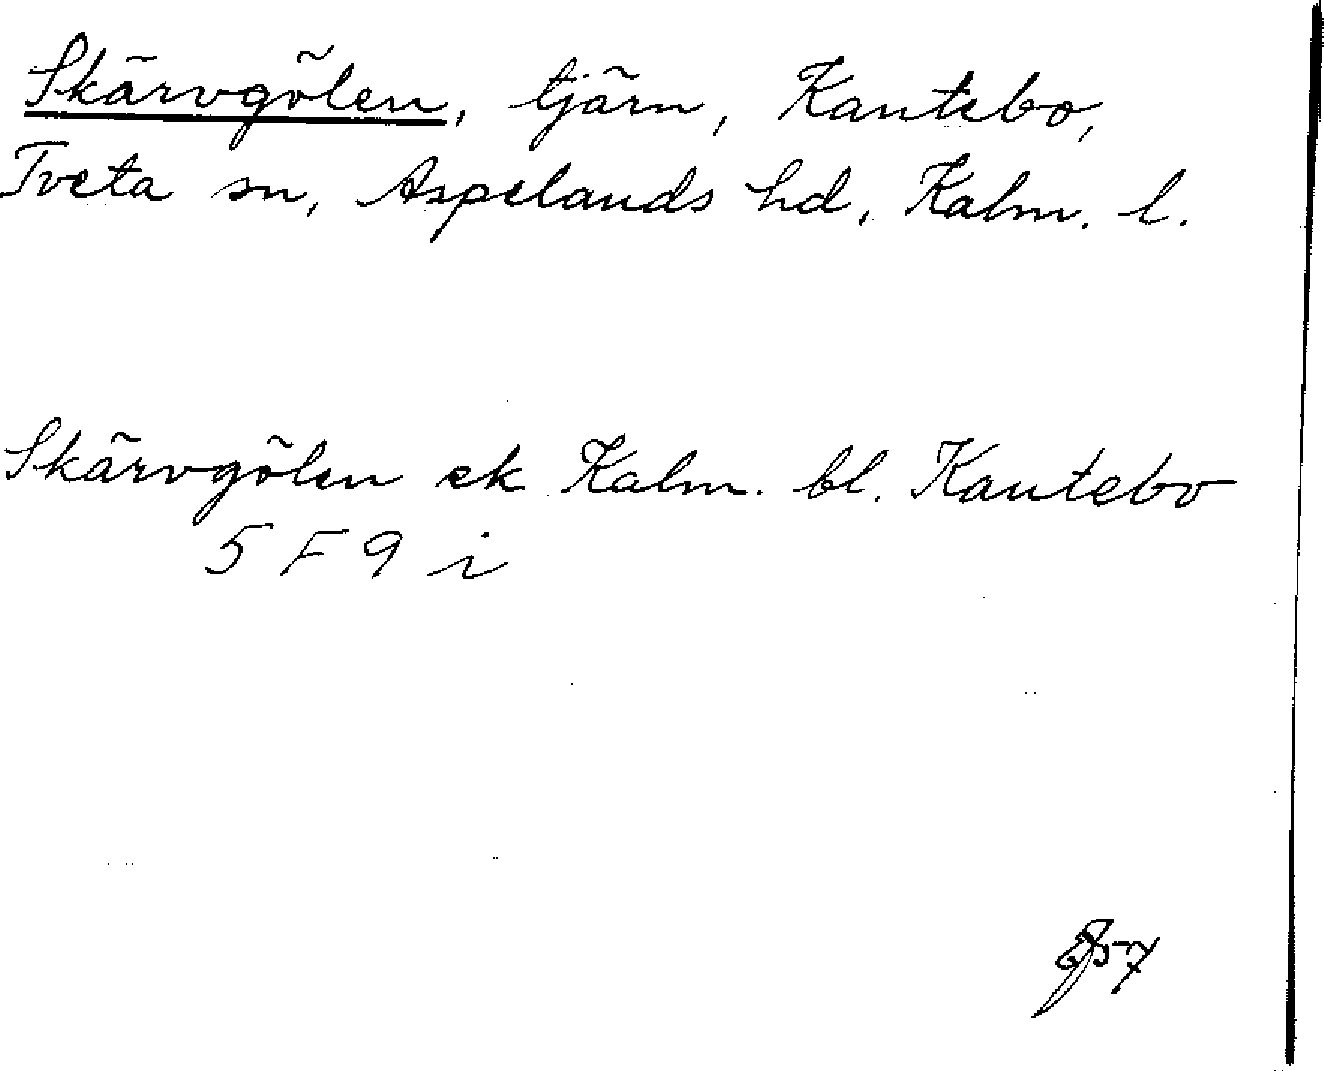 Skärvgölen, tjärn, Kantebo,
Tveta sn, Aspelands hd, Kalm. l.
Skärvgölen ek Kalm. bl. Kantebo
5 F 9 i